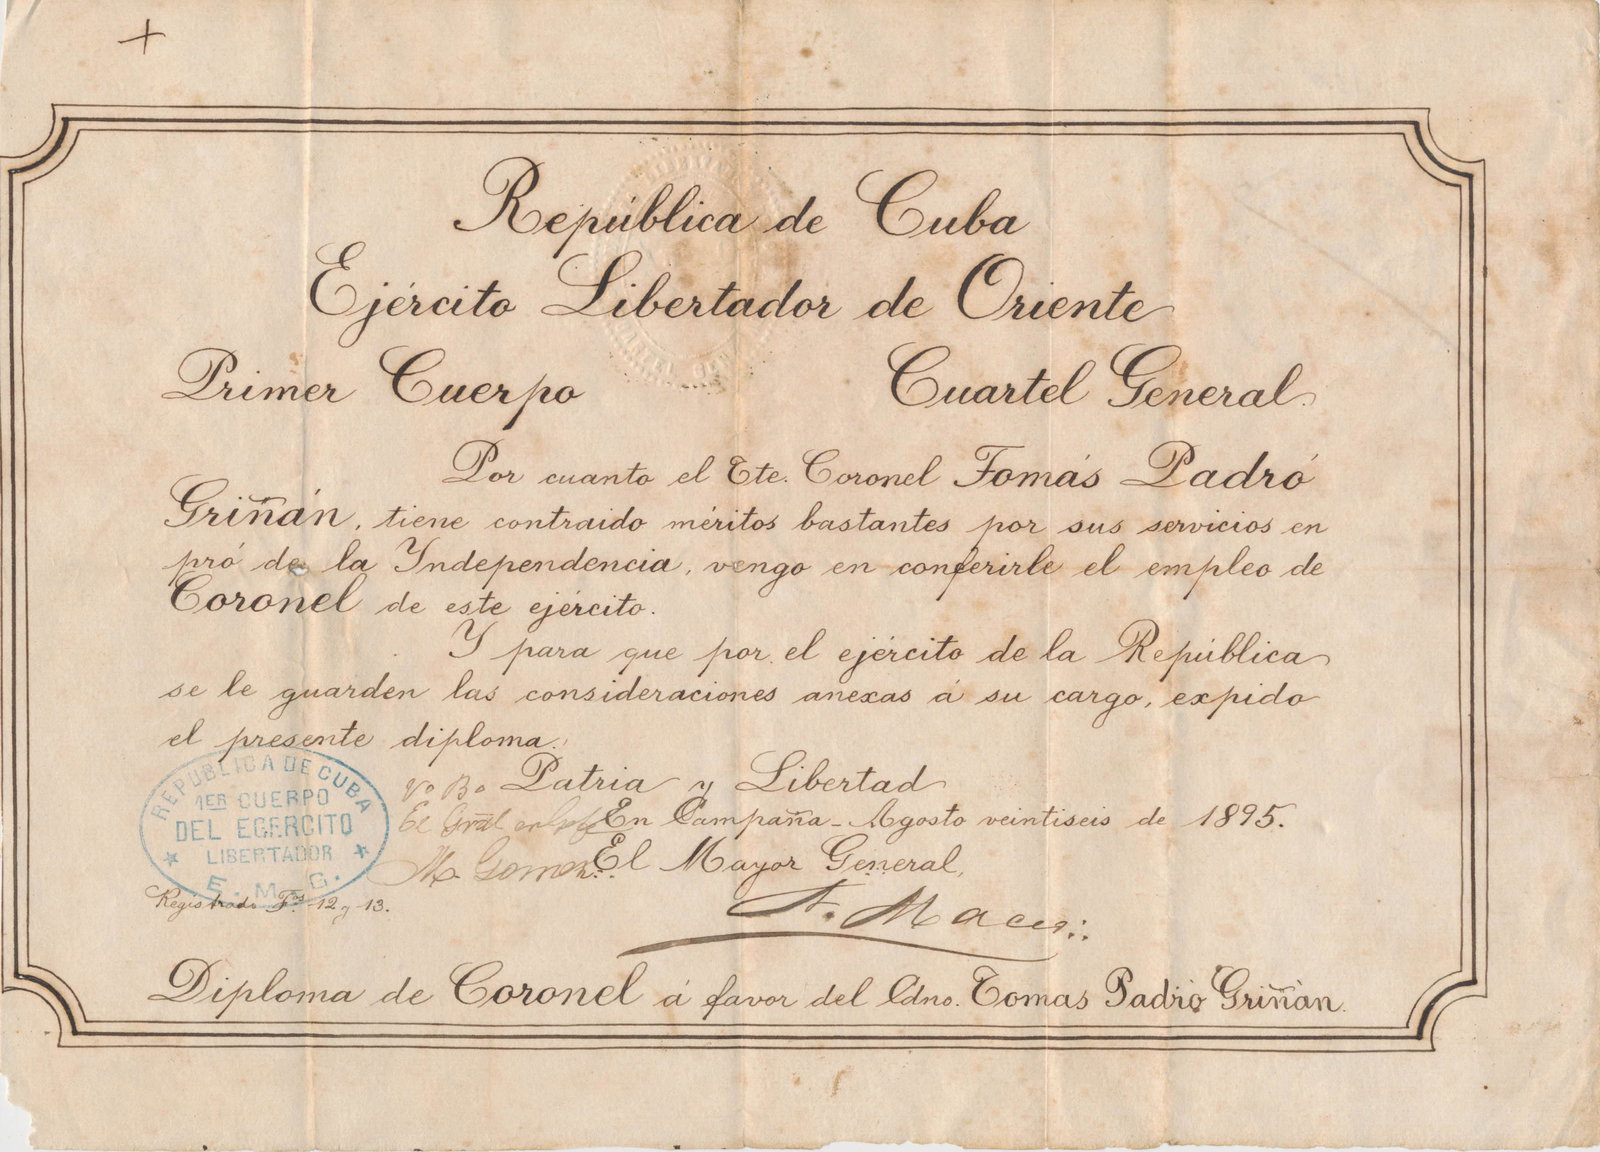 República de Cuba
Ejército Libertador de Oriente
Primer Cuerpo Cuartel General.
Por cuanto el Tte. Coronel Tomás Padró
Griñán, tiene contraido méritos bastantes por sus servicios en
pró de la Independencia, vengo en conferirle el empleo de
Coronel de este ejército.
Y para que por el ejército de la República
se le guarden las consideraciones anexas á su cargo, expido
el presente diploma.
Vo Bo Patria y Libertad
El Gral en Jefe En Campaña - Agosto veintiseis de 1895.
M. Gomez El Mayor General,
A. Maceo
REPUBLICA DE CUBA
1ER CUERPO
DEL EGERCITO
LIBERTADOR
E. M. G.
Registrado Fos. 12 y 13.
Diploma de Coronel á favor del Cdno. Tomas Padró Griñán.